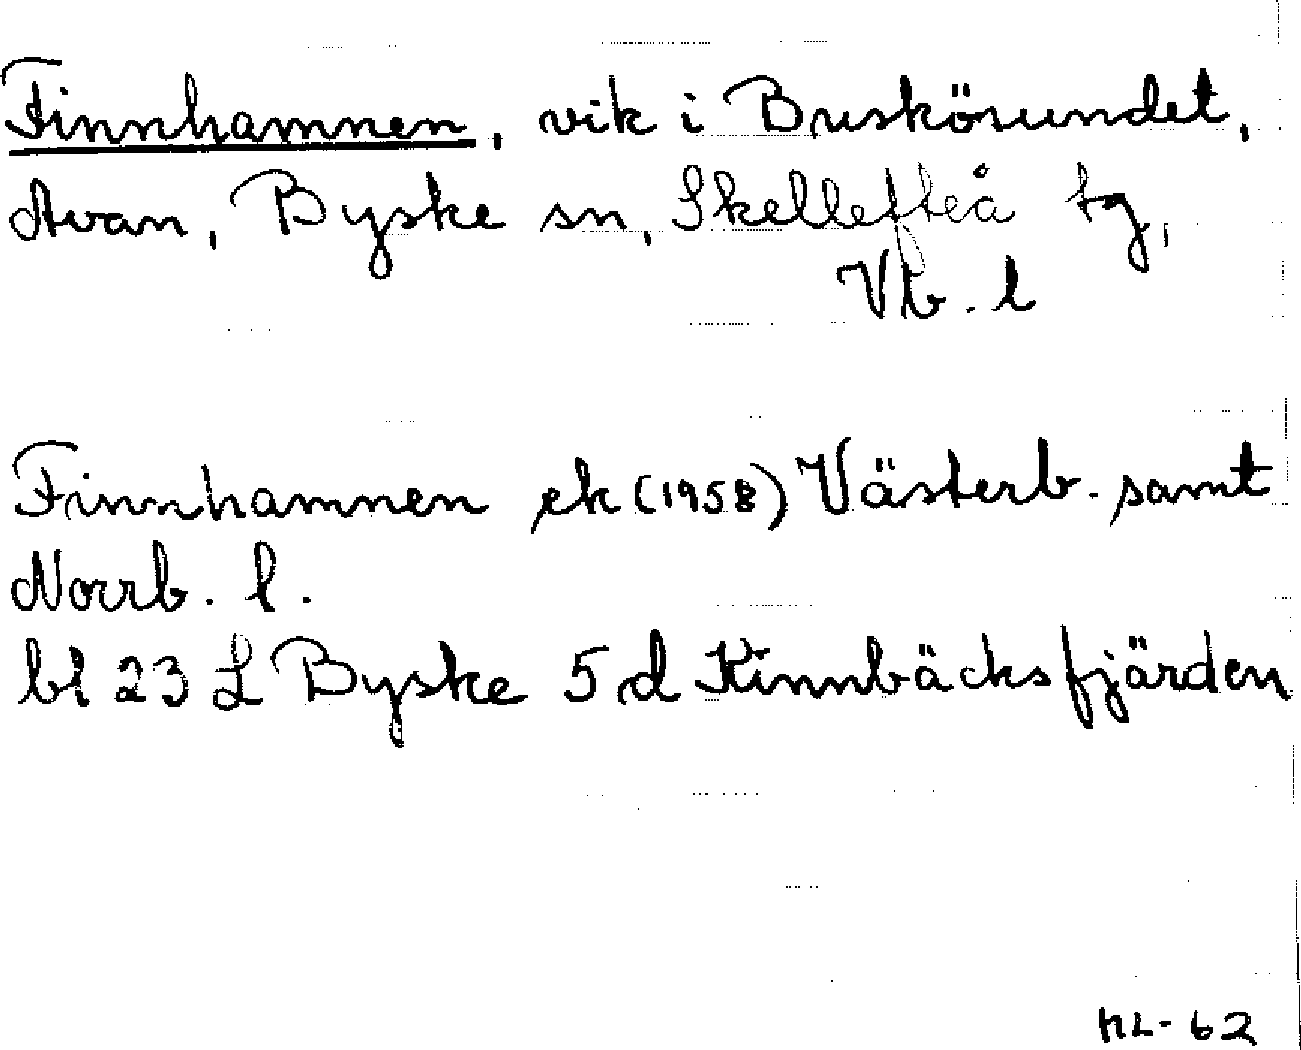 Finnhamnen, vik i Buskösundet,
Avan, Byske sn, Skellefteå tg,
Vb. l
Finnhamnen ek (1958) Västerb. samt
Norrb. l.
bl 23 L Byske 5 d Kinnbäcksfjärden
HL-62